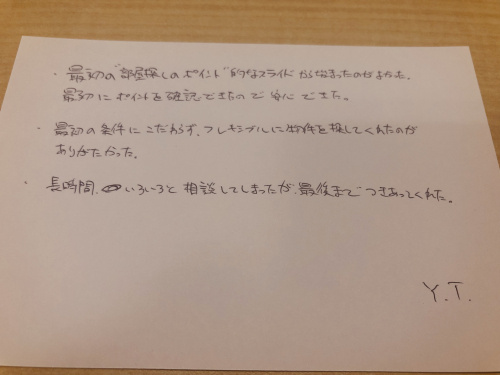 ・最初の"部屋探しのポイント"的なスライドから始まったのがよかった。
最初にポイントを確認できたので安心できた。
・最初の条件にこだわらず、フレキシブルに物件を探してくれたのが
ありがたかった。
・長時間、いろいろと相談してしまったが、最後までつきあってくれた。
Y.T.